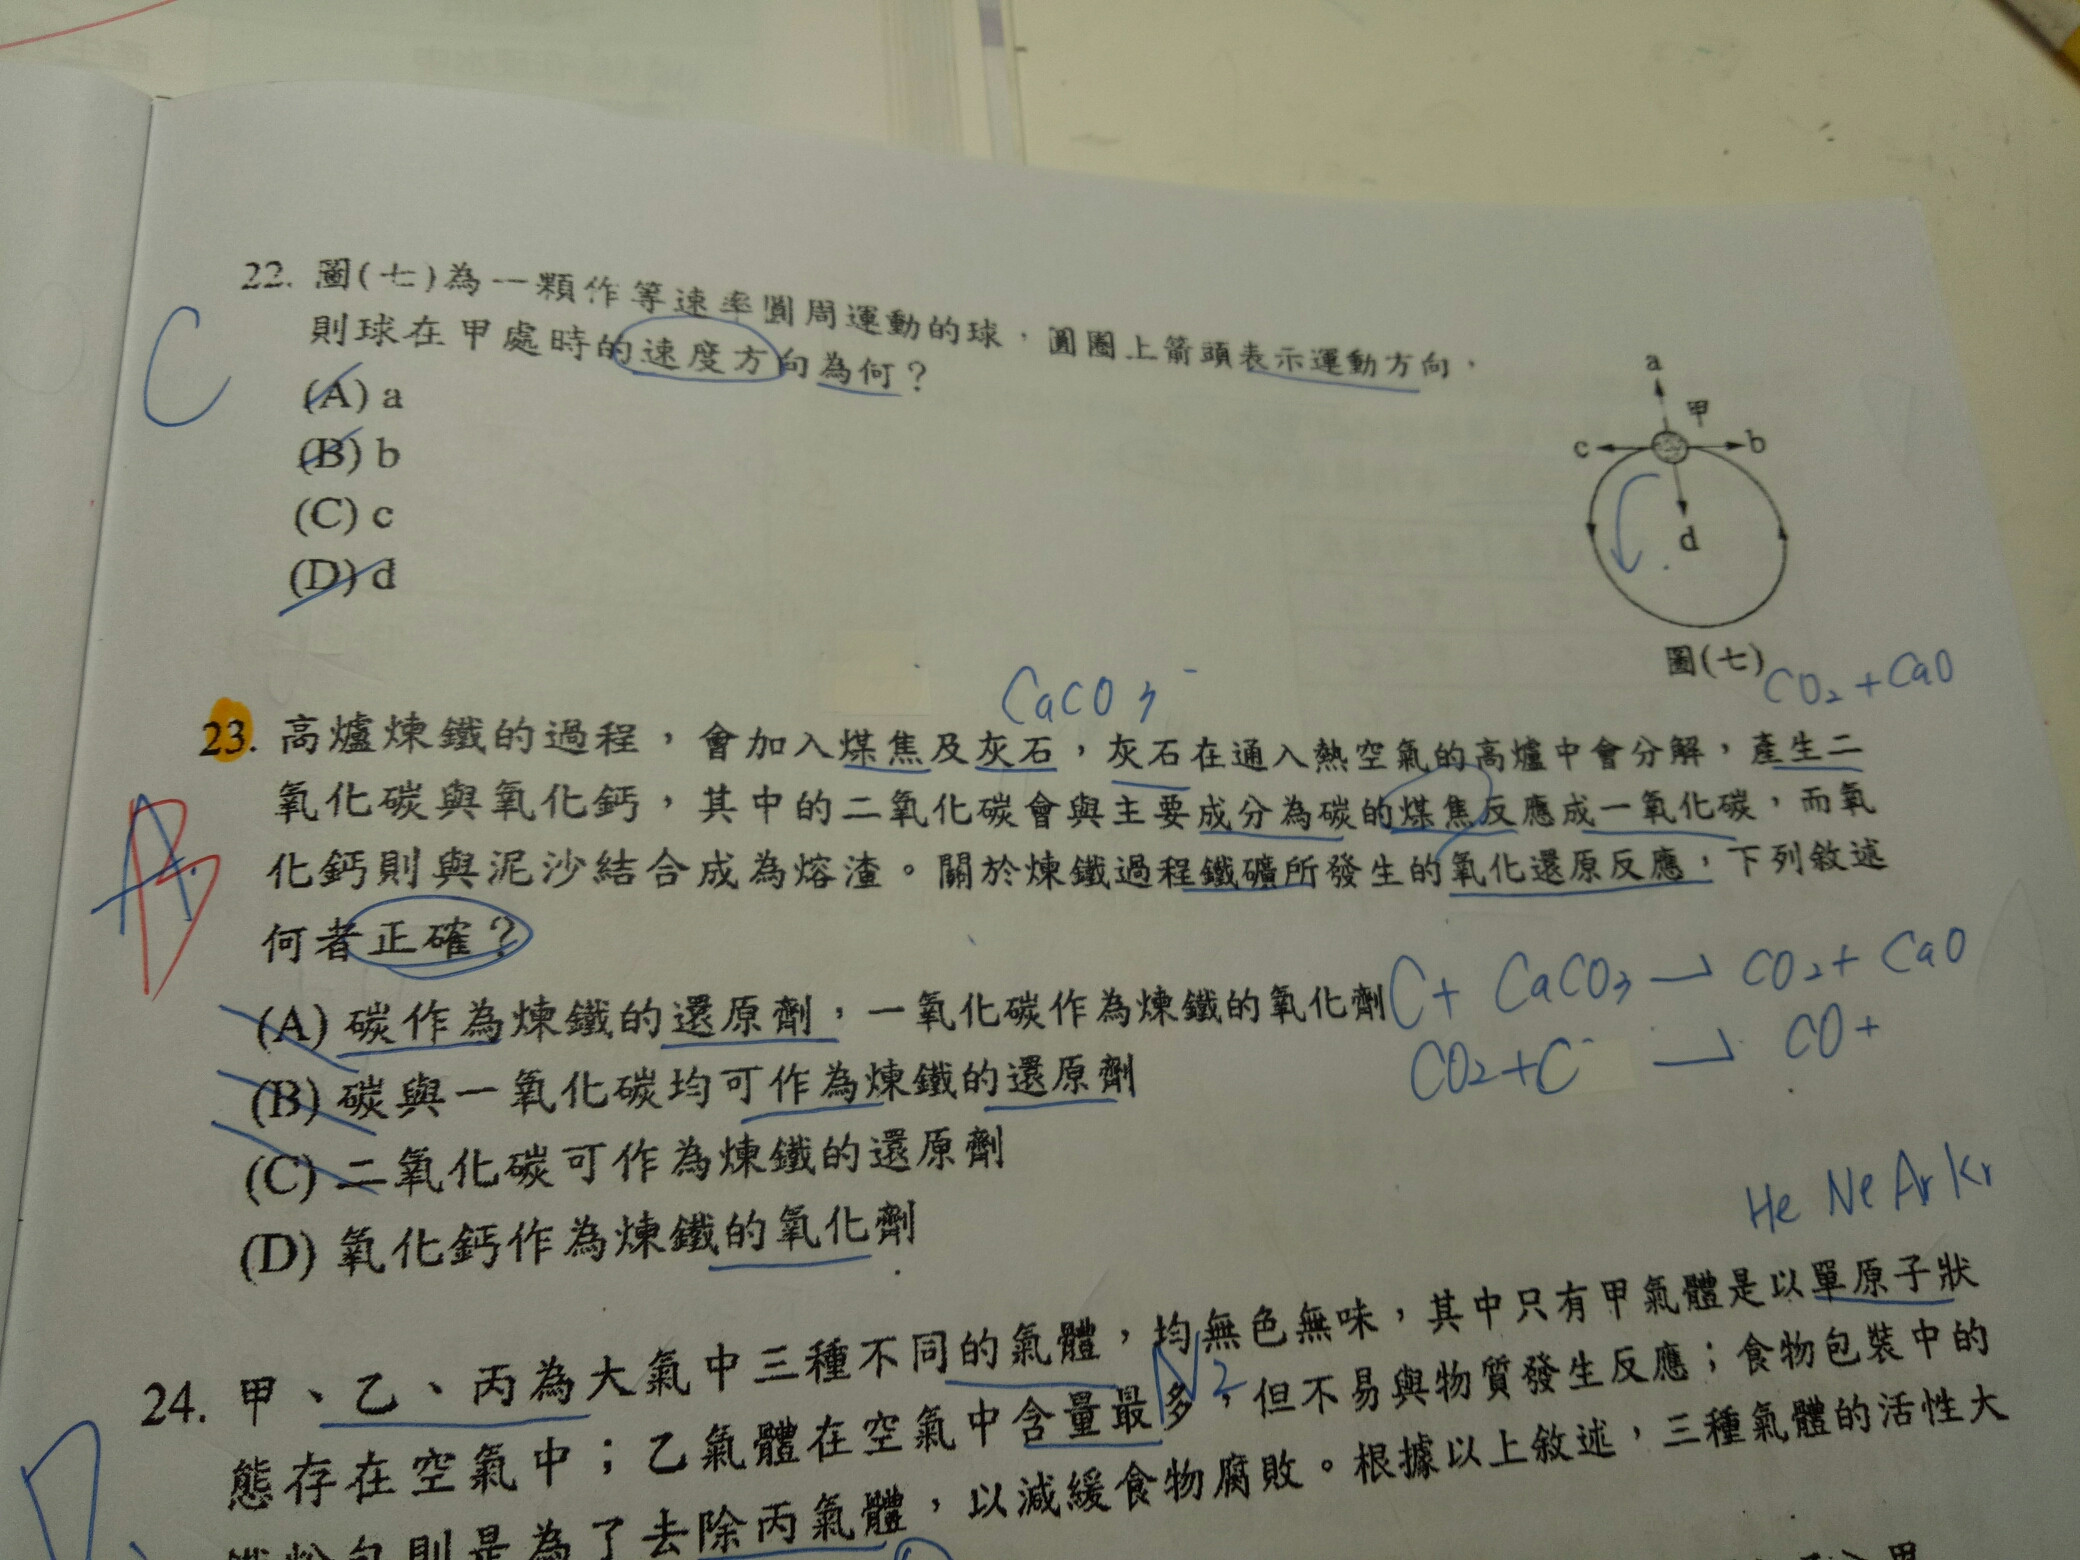 22. 圖(七)為一顆作等速率圓周運動的球，圓圈上箭頭表示運動方向，
則球在甲處時的速度方向為何？
C
(A) a
(B) b
(C) c
(D) d
a
甲
c
b
d
圖(七)
CO₂ + CaO
CaCO₃
23. 高爐煉鐵的過程，會加入煤焦及灰石，灰石在通入熱空氣的高爐中會分解，產生二
氧化碳與氧化鈣，其中的二氧化碳會與主要成分為碳的煤焦反應成一氧化碳，而氧
化鈣則與泥沙結合成為熔渣。關於煉鐵過程鐵礦所發生的氧化還原反應，下列敘述
何者正確？
A
B
(A) 碳作為煉鐵的還原劑，一氧化碳作為煉鐵的氧化劑
C + CaCO₃ → CO₂ + CaO
(B) 碳與一氧化碳均可作為煉鐵的還原劑
CO₂ + C → CO +
(C) 二氧化碳可作為煉鐵的還原劑
(D) 氧化鈣作為煉鐵的氧化劑
He Ne Ar Kr
24. 甲、乙、丙為大氣中三種不同的氣體，均無色無味，其中只有甲氣體是以單原子狀
N₂
態存在空氣中；乙氣體在空氣中含量最多，但不易與物質發生反應；食物包裝中的
則是為了去除丙氣體，以減緩食物腐敗。根據以上敘述，三種氣體的活性大